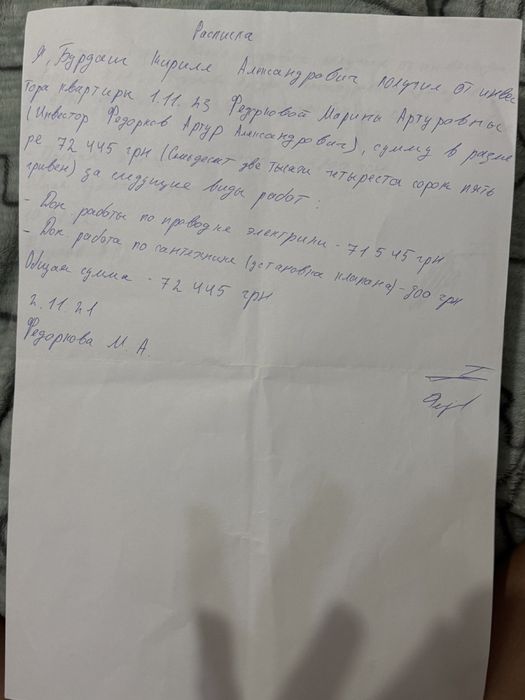 Расписка
Я, Бурдаш Кирилл Александрович получил от инвес
тора квартиры 1.11.43 Федорковой Марины Артуровны
(Инвестор Федорков Артур Александрович), сумму в разме
ре 72 445 грн (Семьдесят две тысячи четыреста сорок пять
гривен) за следущие виды работ:
- Доп. работы по проводке электрики - 71 545 грн
- Доп. работа по сантехнике (установка клапана) - 900 грн
Общая сумма - 72 445 грн
2.11.21
Федоркова М. А.